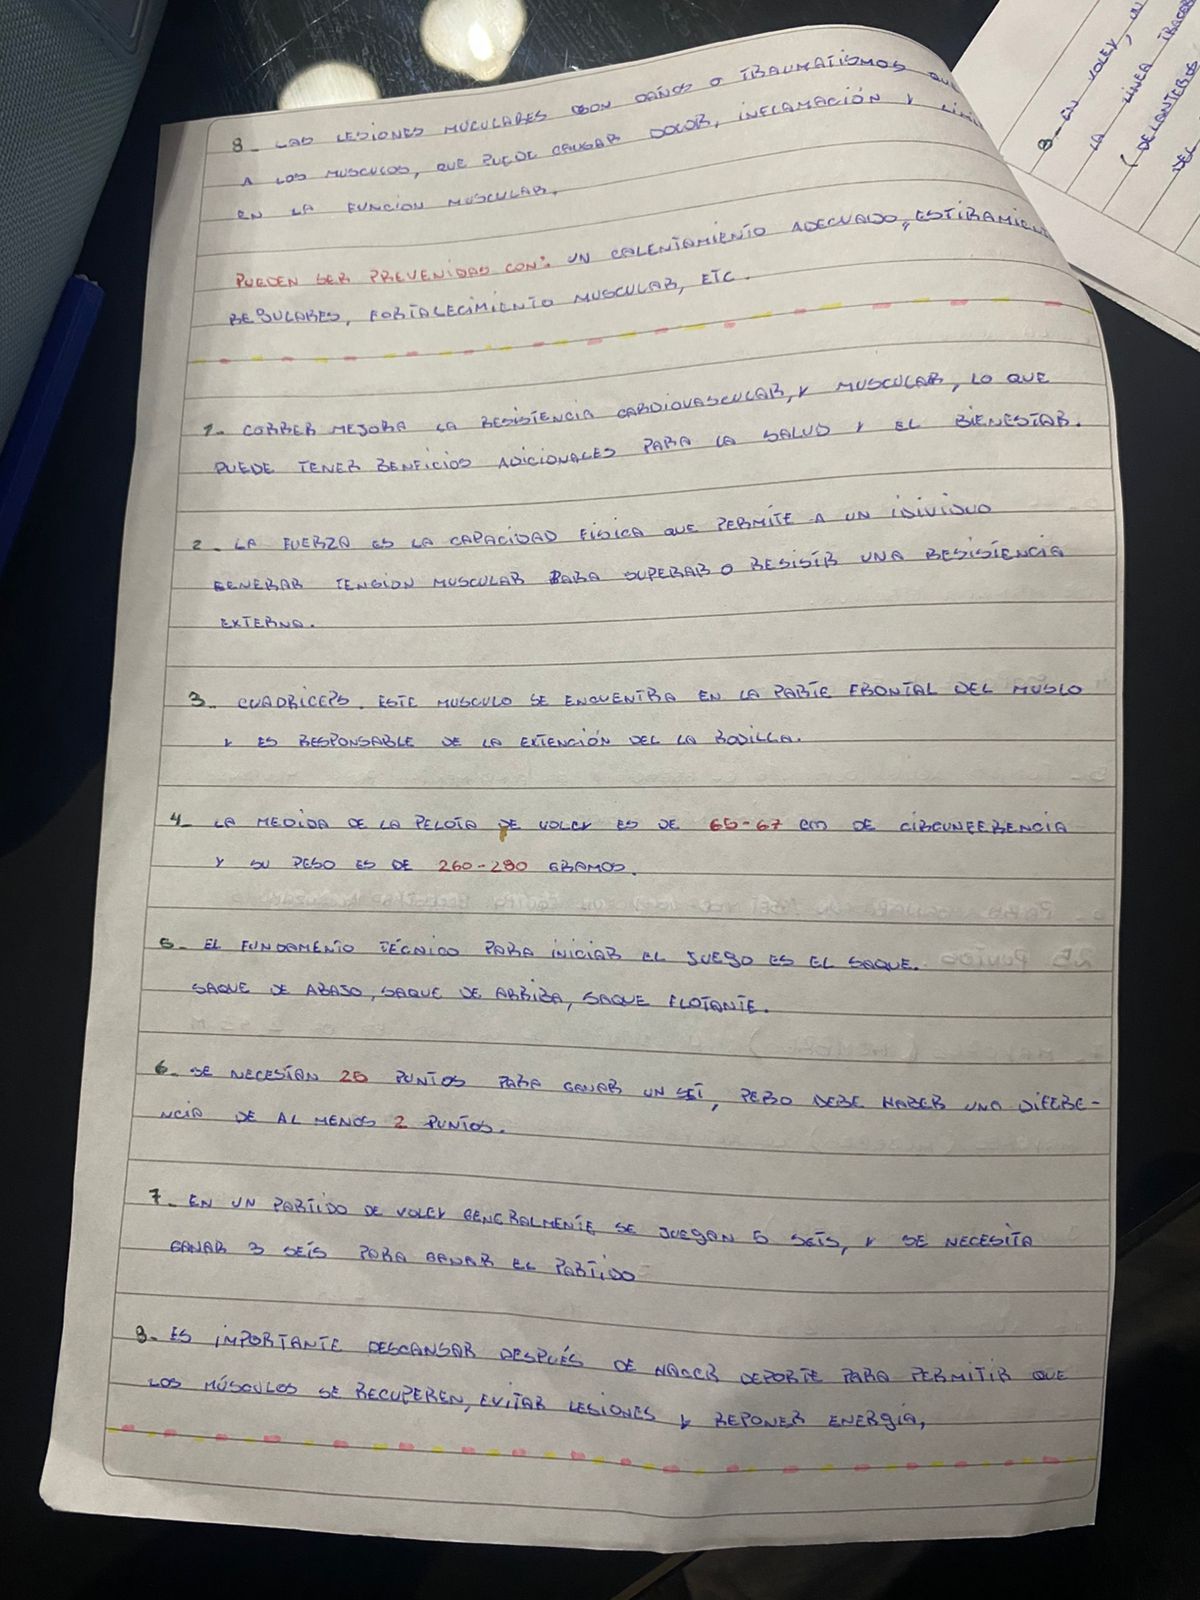 8- LAS LESIONES MUCULARES SON DAÑOS O TRAUMATISMOS QUE
A LOS MUSCULOS, QUE PUEDE CAUSAR DOLOR, INFLAMACIÓN Y
EN LA FUNCION MUSCULAR,
PUEDEN SER PREVENIDAS CON: UN CALENTAMIENTO ADECUADO, ESTIRAMIEN
REGULARES, FORTALECIMIENTO MUSCULAR, ETC.
1- CORRER MEJORA LA RESISTENCIA CARDIOVASCULAR, Y MUSCULAR, LO QUE
PUEDE TENER BENFICIOS ADICIONALES PARA LA SALUD Y EL BIENESTAR.
2- LA FUERZA ES LA CAPACIDAD FÍSICA QUE PERMITE A UN IDIVIDUO
GENERAR TENSION MUSCULAR PARA SUPERAR O RESISTIR UNA RESISTENCIA
EXTERNA.
3- CUADRICEPS. ESTE MUSCULO SE ENCUENTRA EN LA PARTE FRONTAL DEL MUSLO
Y ES RESPONSABLE DE LA EXTENCIÓN DEL LA RODILLA.
4- LA MEDIDA DE LA PELOTA DE VOLEY ES DE 65-67 cm DE CIRCUNFERENCIA
Y SU PESO ES DE 260-280 GRAMOS.
5- EL FUNDAMENTO TÉCNICO PARA INICIAR EL JUEGO ES EL SAQUE.
SAQUE DE ABAJO, SAQUE DE ARRIBA, SAQUE FLOTANTE.
6- SE NECESITAN 25 PUNTOS PARA GANAR UN SET, PERO DEBE HABER UNA DIFERE-
NCIA DE AL MENOS 2 PUNTOS.
7- EN UN PARTIDO DE VOLEY GENERALMENTE SE JUEGAN 5 SETS, Y SE NECESITA
GANAR 3 SETS PARA GANAR EL PARTIDO
8- ES IMPORTANTE DESCANSAR DESPUÉS DE HACER DEPORTE PARA PERMITIR QUE
LOS MÚSCULOS SE RECUPEREN, EVITAR LESIONES Y REPONER ENERGÍA,
EN VOLEY, UN
LA LÍNEA
(DELANTEROS
DEL